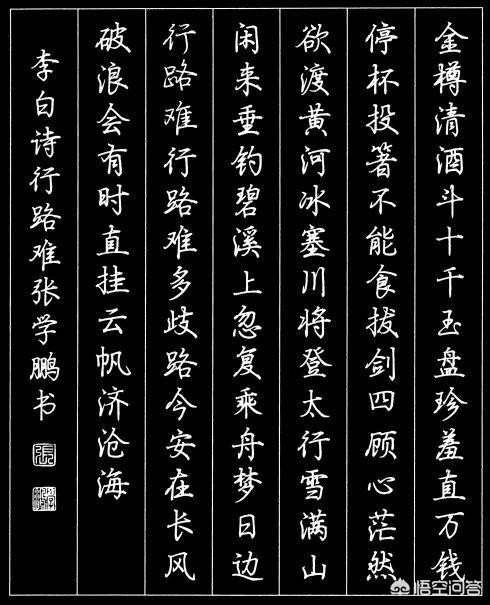 金樽清酒斗十千玉盘珍羞直万钱
停杯投箸不能食拔剑四顾心茫然
欲渡黄河冰塞川将登太行雪满山
闲来垂钓碧溪上忽复乘舟梦日边
行路难行路难多歧路今安在长风
破浪会有时直挂云帆济沧海
李白诗行路难张学鹏书
悟空问答